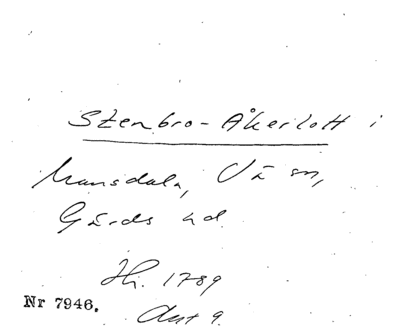 Stenbro-Åkerlott i
Mansdala, Vä sn,
Gärds hd
Hi. 1789
Nr 7946.
Avt 9.